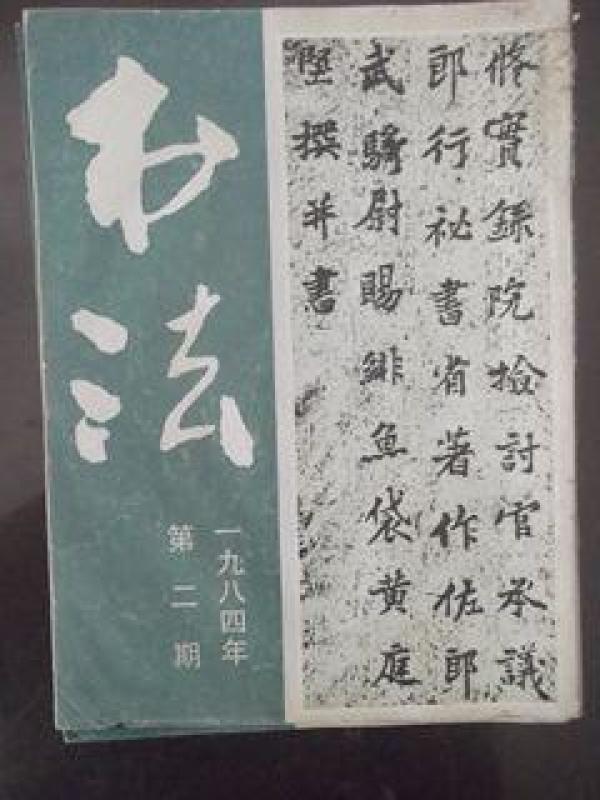 书法
一九八四年
第二期
脩實錄院檢討官承議
郎行祕書省著作佐郎
武騎尉賜緋魚袋黄庭
堅撰并書